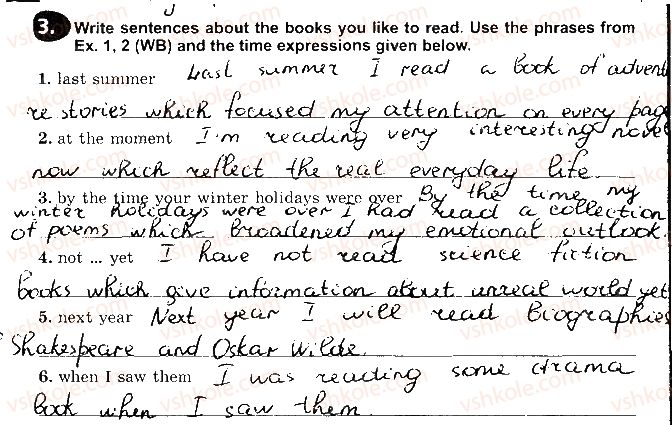 3. Write sentences about the books you like to read. Use the phrases from
Ex. 1, 2 (WB) and the time expressions given below.
1. last summer Last summer I read a book of adventu
re stories which focused my attention on every page
2. at the moment I'm reading very interesting novel
now which reflect the real everyday life
3. by the time your winter holidays were over By the time my
winter holidays were over I had read a collection
of poems which broadened my emotional outlook.
4. not ... yet I have not read science fiction
books which give information about unreal world yet
5. next year Next year I will read Biographies
Shakespeare and Oskar Wilde.
6. when I saw them I was reading some drama
book when I saw them.